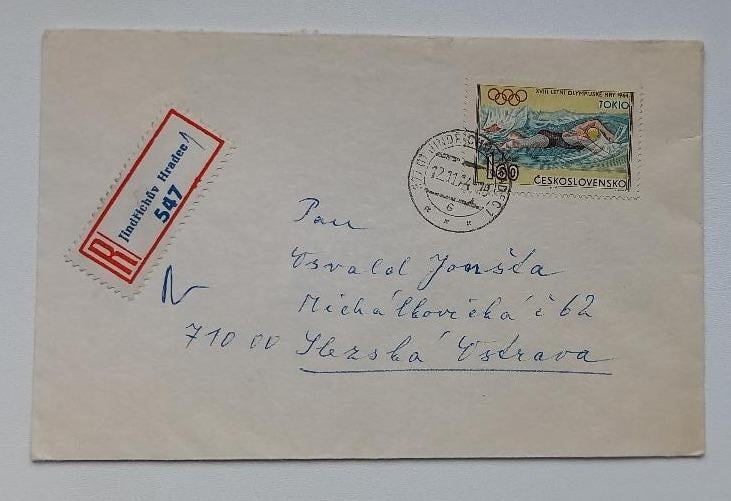 XVIII. LETNÍ OLYMPIJSKÉ HRY 1964
TOKIO
1.60
ČESKOSLOVENSKO
JINDŘICHŮV HRADEC 1
12.11.74
6
R
Jindřichův Hradec 1
547
Pan
Osvald Jonšta
Michálkovická č 62
71000 Slezská Ostrava